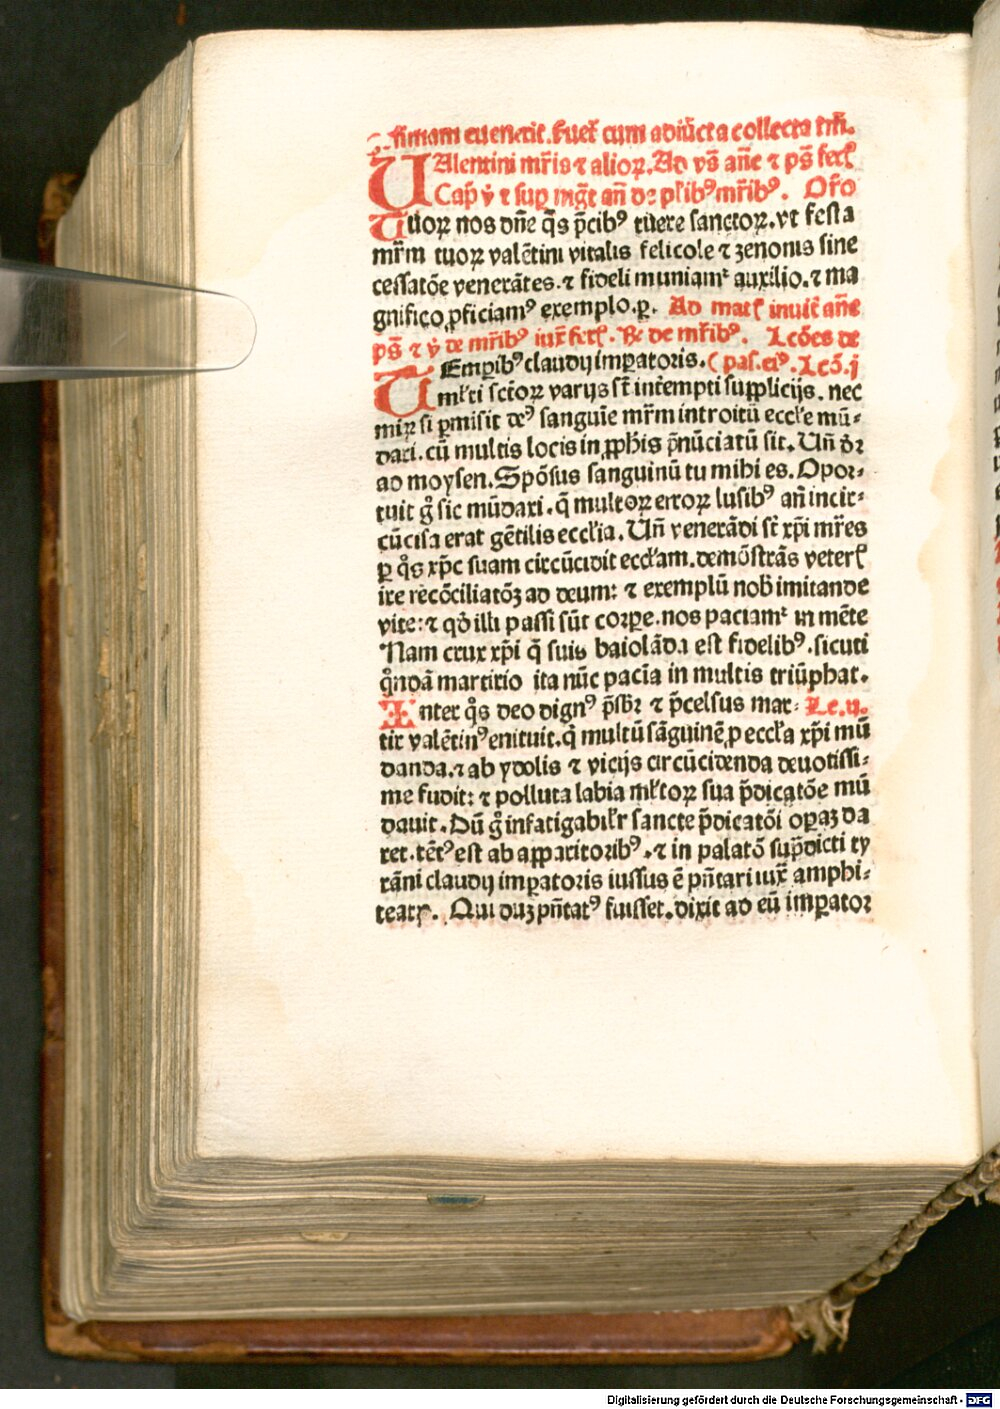 simam euenerit. fuer̄t cum adiūcta collecta tm̄.
VAlentini mr̄is ⁊ alioꝝ. Ad vs̄ ane ⁊ ps̄ fert
Cap̄ v̓ ⁊ sup mg̅t an̄ de plib⁹ mr̄ib⁹. Or̄o
Tuoꝝ nos dn̄e q̄s p̄cib⁹ tuere sanctoꝝ. vt festa
mr̄m tuoꝝ valētini vitalis felicole ⁊ zenonis sine
cessatōe venerātes. ⁊ fideli muniamᷣ auxilio. ⁊ ma
gnifico ꝓficiam⁹ exemplo. ꝑ. Ad mat inuit̄ ane
ps̄ ⁊ v̓ de mr̄ib⁹ iux̄ fert. R̄ de mr̄ib⁹. Lcōes de
TEmꝑib⁹ claudij imꝑatoris. ( pas. ei⁹. Lcō. j
mlti sctoꝝ varijs st̄ int̄empti supplicijs. nec
miꝝ si ꝑmisit de⁹ sanguīe mr̄m introitū eccl'e mū-
dari. cū multis locis in ꝓphīs p̄nūciatū sit. Un̄ d̄r
ad moysen. Spōsus sanguinū tu mihi es. Opor-
tuit g̊ sic mūdari. q̄ multoꝝ erroꝝ lusib⁹ an̄ incir-
cūcisa erat gētilis eccl'ia. Un̄ venerādi st̄ xp̄i mr̄es
ꝑ q̊s xp̄c suam circūcidit eccl'am. demōstrās veter
ire recōciliatōꝫ ad deum: ⁊ exemplū nob̄ imitande
vite: ⁊ qd̓ illi passi sūt corꝑe. nos paciamᷣ in mēte
Nam crux xp̄i q̄ suis baiolāda est fidelib⁹. sicuti
q̊ndā martirio ita nūc pacīa in multis triūphat.
Inter q̊s deo dign⁹ p̄sbr̄ ⁊ p̄celsus mar- Le. ij.
tir valētin⁹ enituit. q̄ multū sāguinē ꝓ eccl'a xp̄i mū
danda. ⁊ ab ydolis ⁊ vicijs circūcidenda deuotissi-
me fudit: ⁊ polluta labia ml'toꝝ sua p̄dicatōe mū
dauit. Dū g̊ infatigabilr̄ sancte p̄dicatōi oꝑaꝫ da
ret. tēt⁹ est ab apparitorib⁹. ⁊ in palatō sup̄dicti ty
rāni claudij imꝑatoris iussus ē pn̄tari iux̄ amphi-
teatꝝ. Qui duꝫ pn̄tat⁹ fuisset. dixit ad eū imꝑator
Digitalisierung gefördert durch die Deutsche Forschungsgemeinschaft - DFG